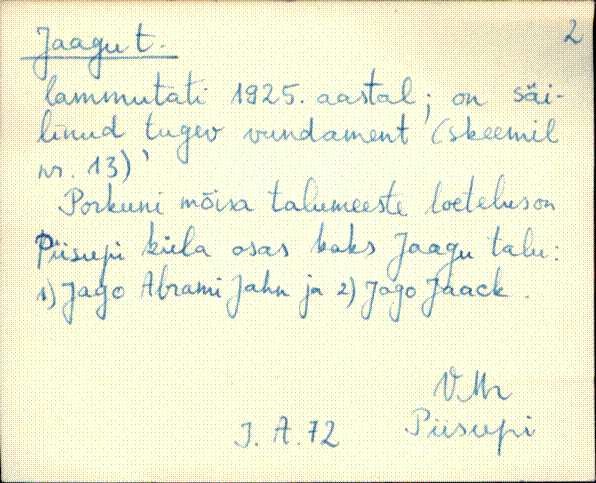 Jaagu t. 2
lammutati 1925. aastal; on säi-
linud tugev vundament (skeemil
nr. 13)
Porkuni mõisa talumeeste loetelus on
Piisupi küla osas kaks Jaagu talu:
1) Jago Abrami Jahn ja 2) Jago Jaack.
V. Mr
J. A. 72 Piisupi